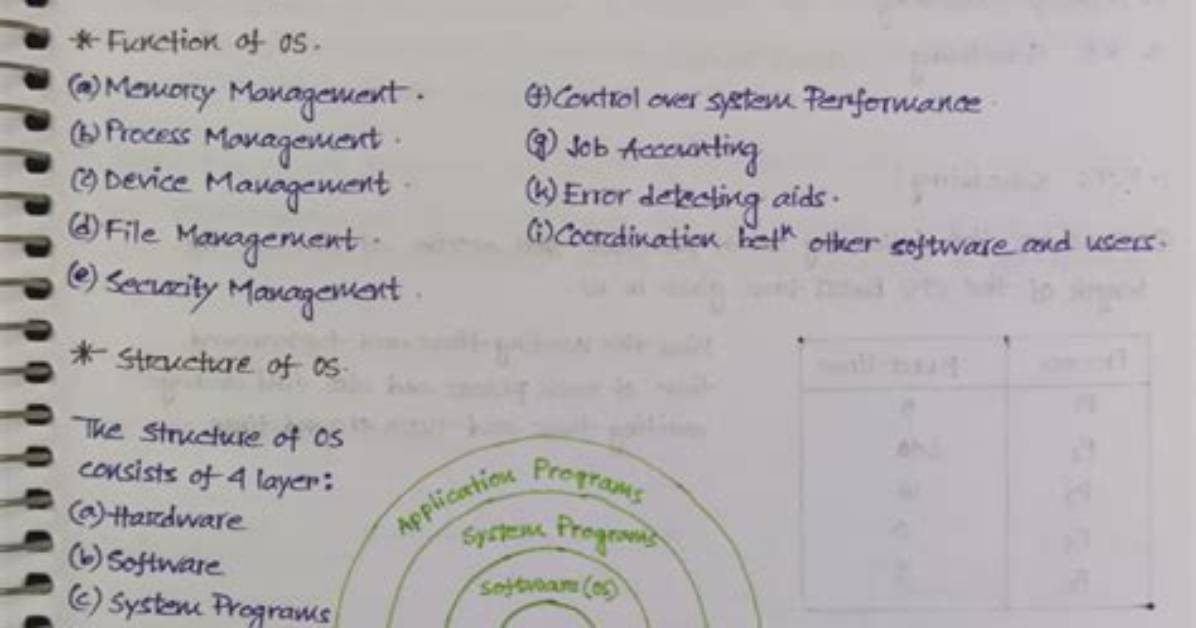 * Function of OS.
(a) Memory Management.
(b) Process Management.
(c) Device Management.
(d) File Management.
(e) Security Management.
(f) Control over system Performance
(g) Job Accounting
(h) Error detecting aids.
(i) Coordination betn other software and users.
* Structure of OS.
The structure of OS
consists of 4 layer:
(a) Hardware
(b) Software
(c) System Programs
Application Programs
System Programs
Software (OS)